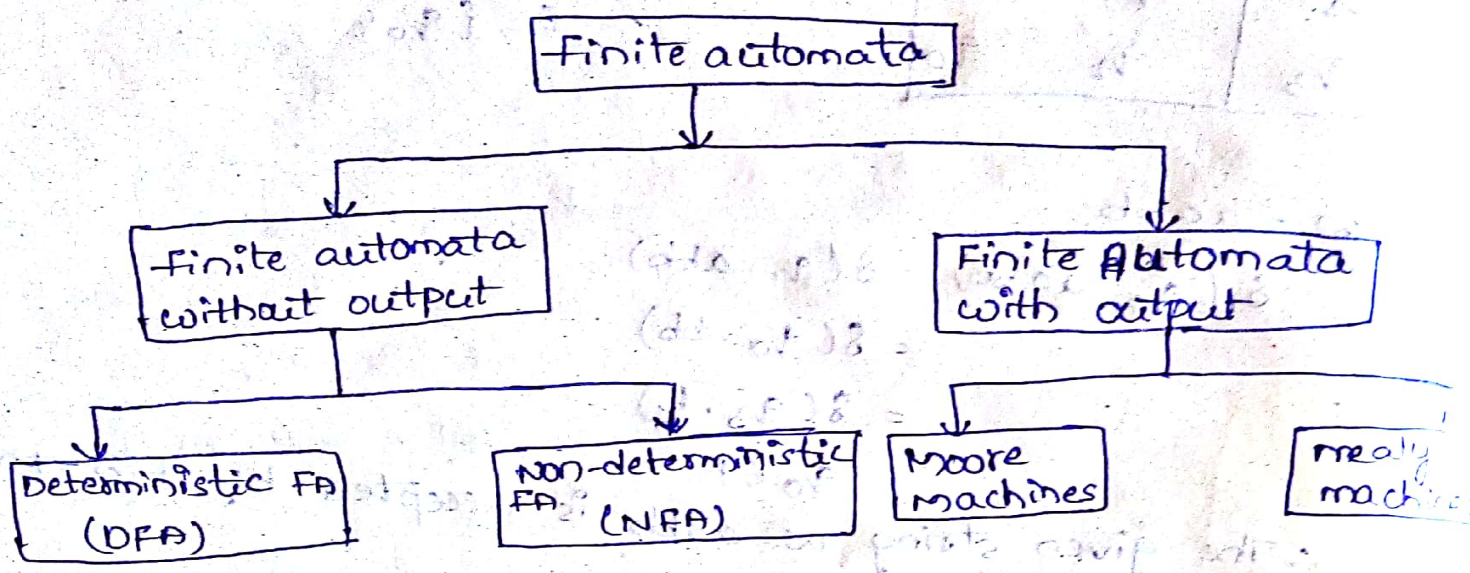 Finite automata
Finite automata
without output
Finite Automata
with output
Deterministic FA
(DFA)
Non-deterministic
FA.
(NFA)
Moore
Machines
mealy
machine